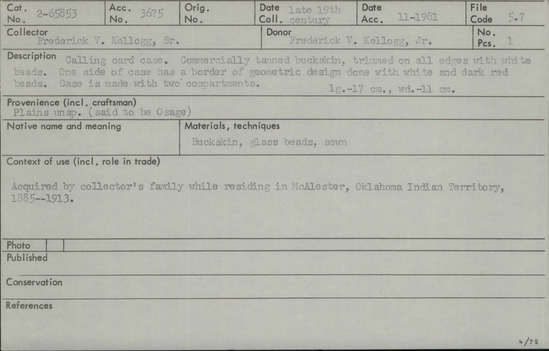 Cat. No. 2-65853 Acc. No. 3675 Orig. No. Date Coll. late 19th century Date Acc. 11-1981 File Code 5.7
Collector Frederick V. Kellogg, Sr. Donor Frederick V. Kellogg, Jr. No. Pcs. 1
Description Calling card case. Commercially tanned buckskin, trimmed on all edges with white
beads. One side of case has a border of geometric design done with white and dark red
beads. Case is made with two compartments. lg.-17 cm., wd.-11 cm.
Provenience (incl. craftsman)
Plains unsp. (said to be Osage)
Native name and meaning Materials, techniques
Buckskin, glass beads, sewn
Context of use (incl. role in trade)
Acquired by collector's family while residing in McAlester, Oklahoma Indian Territory,
1885--1913.
Photo
Published
Conservation
References
4/78